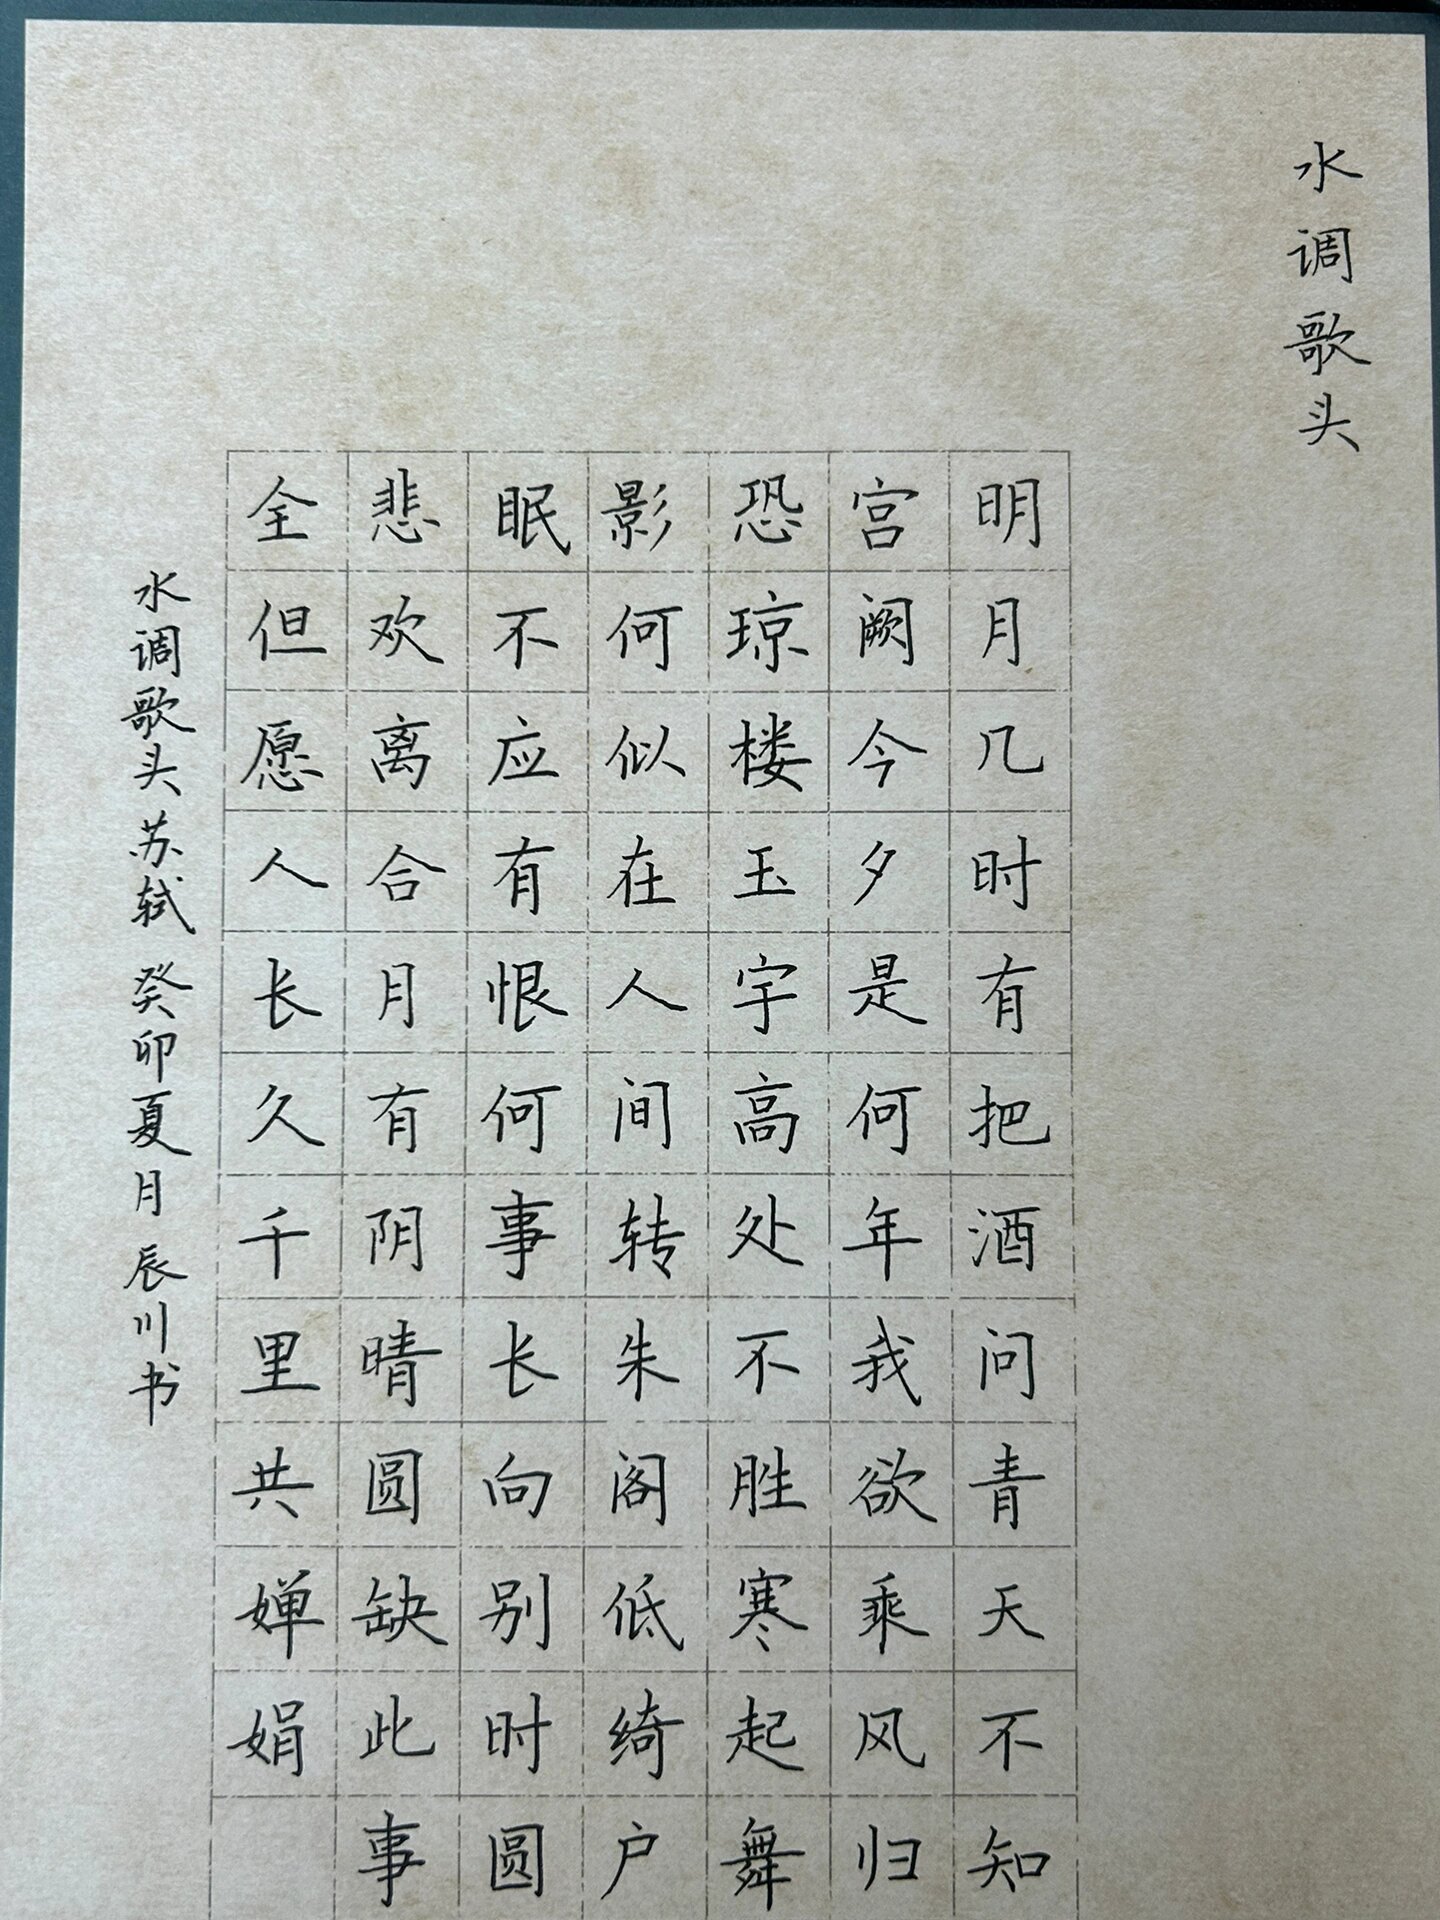 水调歌头
明月几时有把酒问青天不知
宫阙今夕是何年我欲乘风归
恐琼楼玉宇高处不胜寒起舞
影何似在人间转朱阁低绮户
眠不应有恨何事长向别时圆
悲欢离合月有阴晴圆缺此事
全但愿人长久千里共婵娟
水调歌头 苏轼 癸卯夏月 辰川书